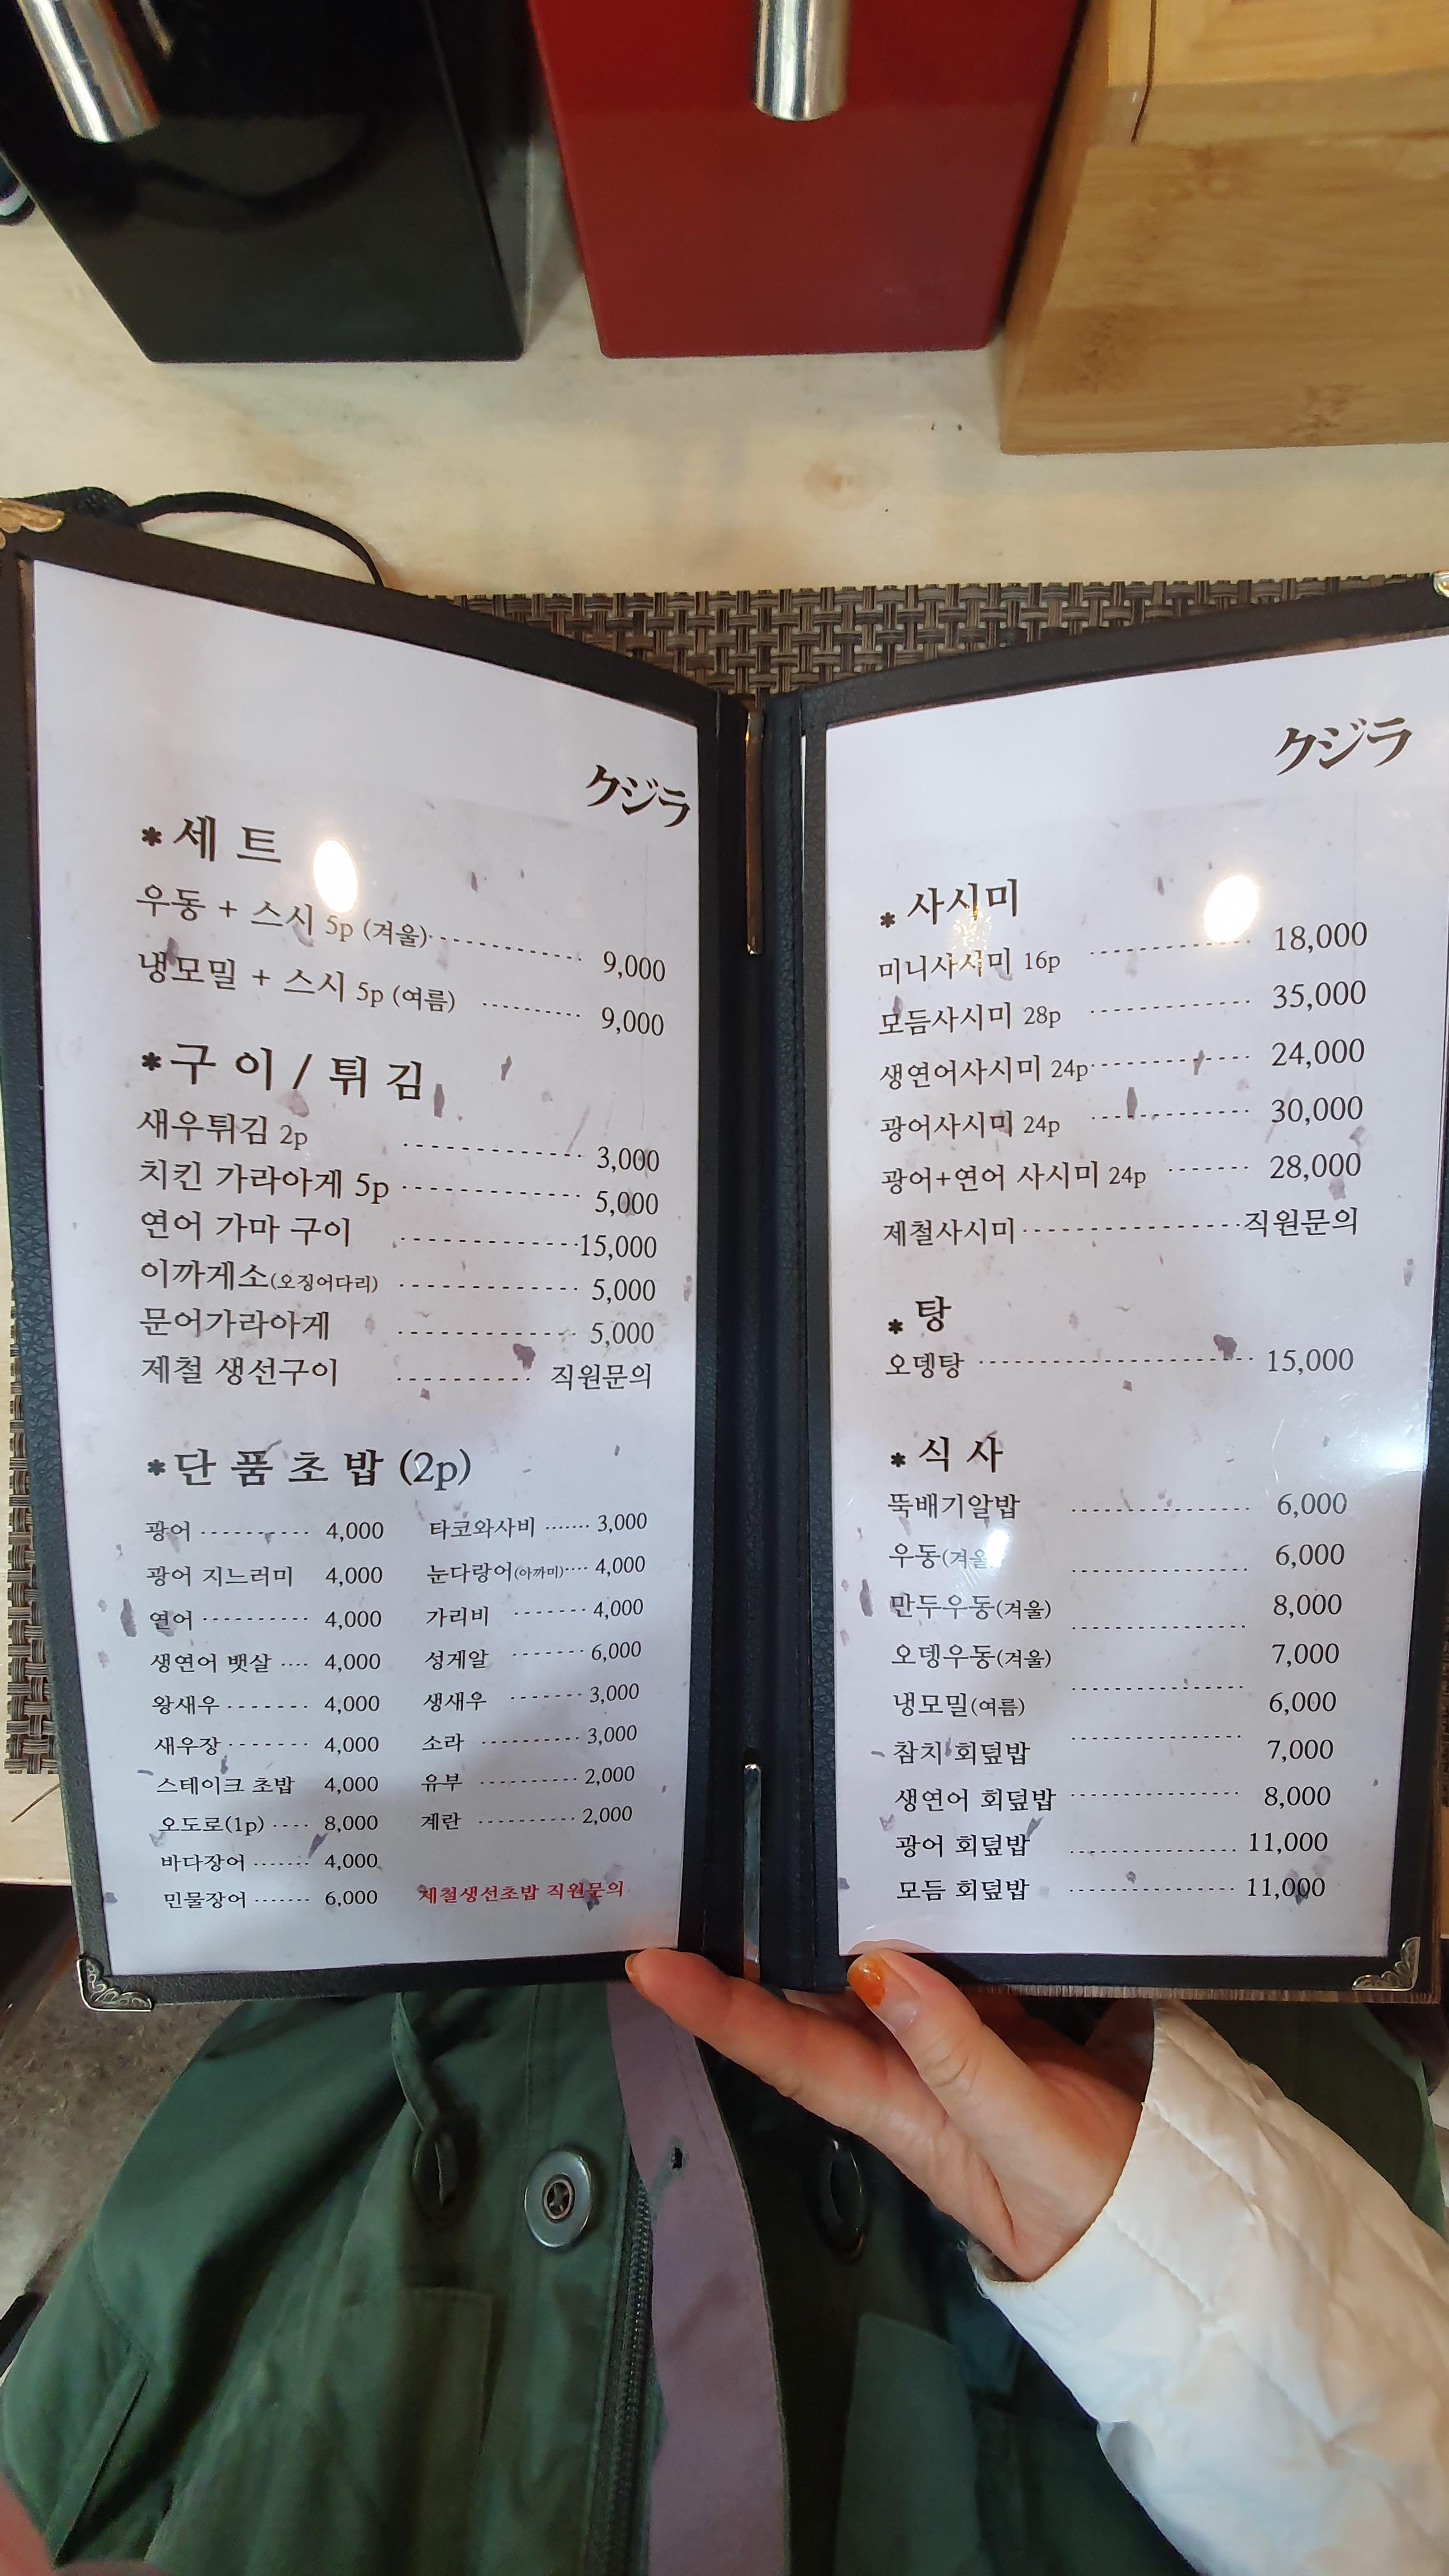 ケジラ
*세 트
우동 + 스시 5p (겨울) 9,000
냉모밀 + 스시 5p (여름) 9,000
*구 이 / 튀 김
새우튀김 2p 3,000
치킨 가라아게 5p 5,000
연어 가마 구이 15,000
이까게소(오징어다리) 5,000
문어가라아게 5,000
제철 생선구이 직원문의
*단 품 초 밥 (2p)
광어 4,000
광어 지느러미 4,000
연어 4,000
생연어 뱃살 4,000
왕새우 4,000
새우장 4,000
스테이크 초밥 4,000
오도로(1p) 8,000
바다장어 4,000
민물장어 6,000
타코와사비 3,000
눈다랑어(아까미) 4,000
가리비 4,000
성게알 6,000
생새우 3,000
소라 3,000
유부 2,000
계란 2,000
제철생선초밥 직원문의
ケジラ
* 사시미
미니사시미 16p 18,000
모듬사시미 28p 35,000
생연어사시미 24p 24,000
광어사시미 24p 30,000
광어+연어 사시미 24p 28,000
제철사시미 직원문의
* 탕
오뎅탕 15,000
* 식 사
뚝배기알밥 6,000
우동(겨울 6,000
만두우동(겨울) 8,000
오뎅우동(겨울) 7,000
냉모밀(여름) 6,000
참치 회덮밥 7,000
생연어 회덮밥 8,000
광어 회덮밥 11,000
모듬 회덮밥 11,000